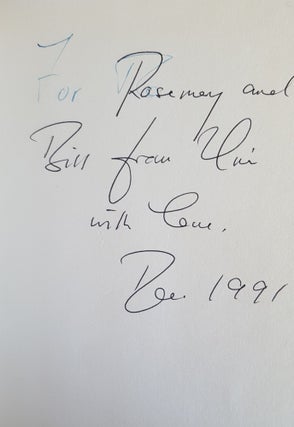 For Rosemary and
Bill from Uni
with love.
Dec 1991